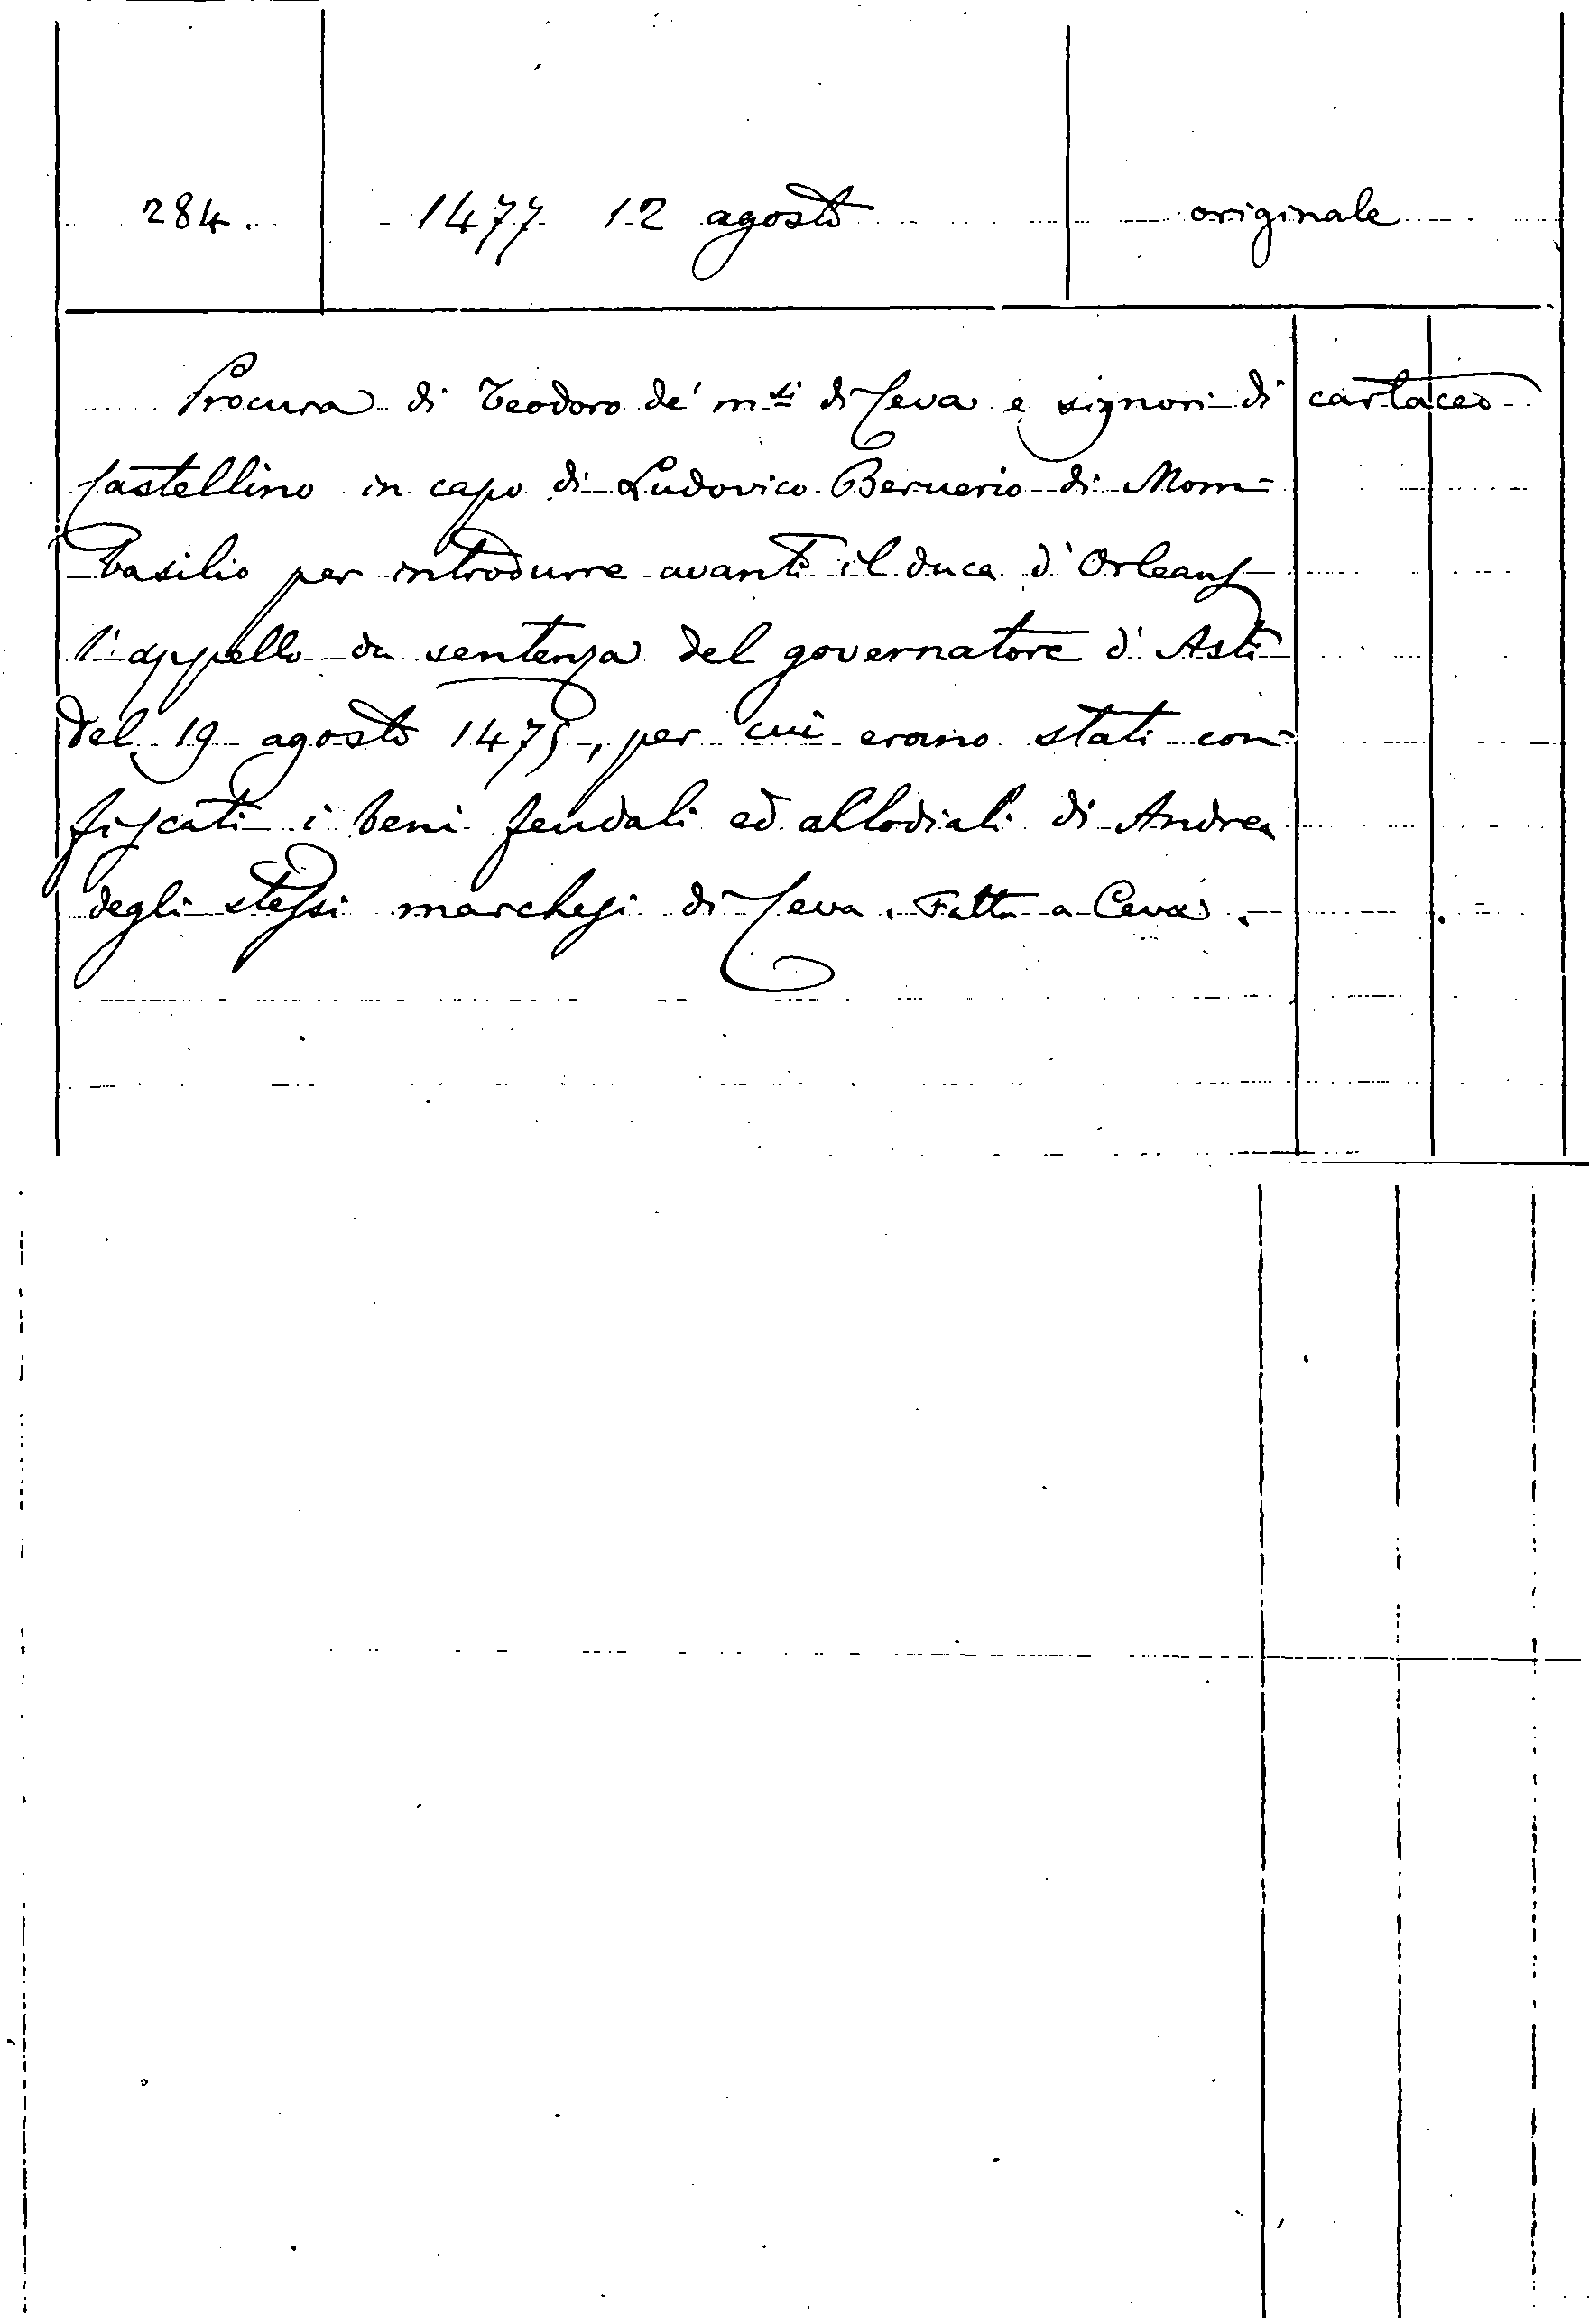 284. 1477 12 agosto originale
Procura di Teodoro de' m.si di Ceva e signori di cartaceo
Castellino in capo di Ludovico Beruerio di Mom=
basilio per introdurre avanti il duca d'Orleans
l'appello da sentenza del governatore d'Asti
del 19 agosto 1475, per cui erano stati con=
fiscati i beni feudali ed allodiali di Andrea
degli stessi marchesi di Ceva. Fatta a Ceva.